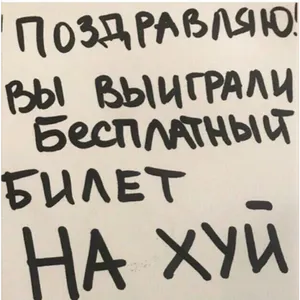 ПОЗДРАВЛЯЮ!
ВЫ ВЫИГРАЛИ
БЕСПЛАТНЫЙ
БИЛЕТ
НА ХУЙ